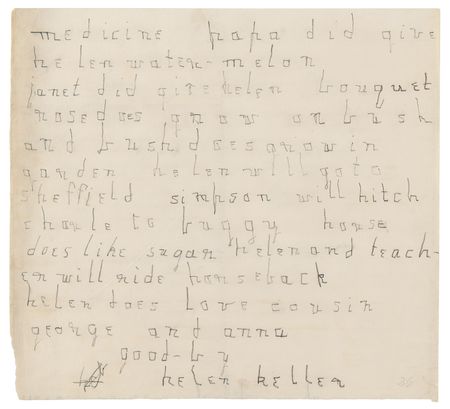 medicine papa did give
helen water-melon
janet did give helen bouquet
rose does grow on bush
and bush does grow in
garden helen will go to
sheffield simpson will hitch
charle to buggy horse
does like sugar helen and teach-
er will ride horseback
helen does love cousin
george and anna
good-by
helen keller